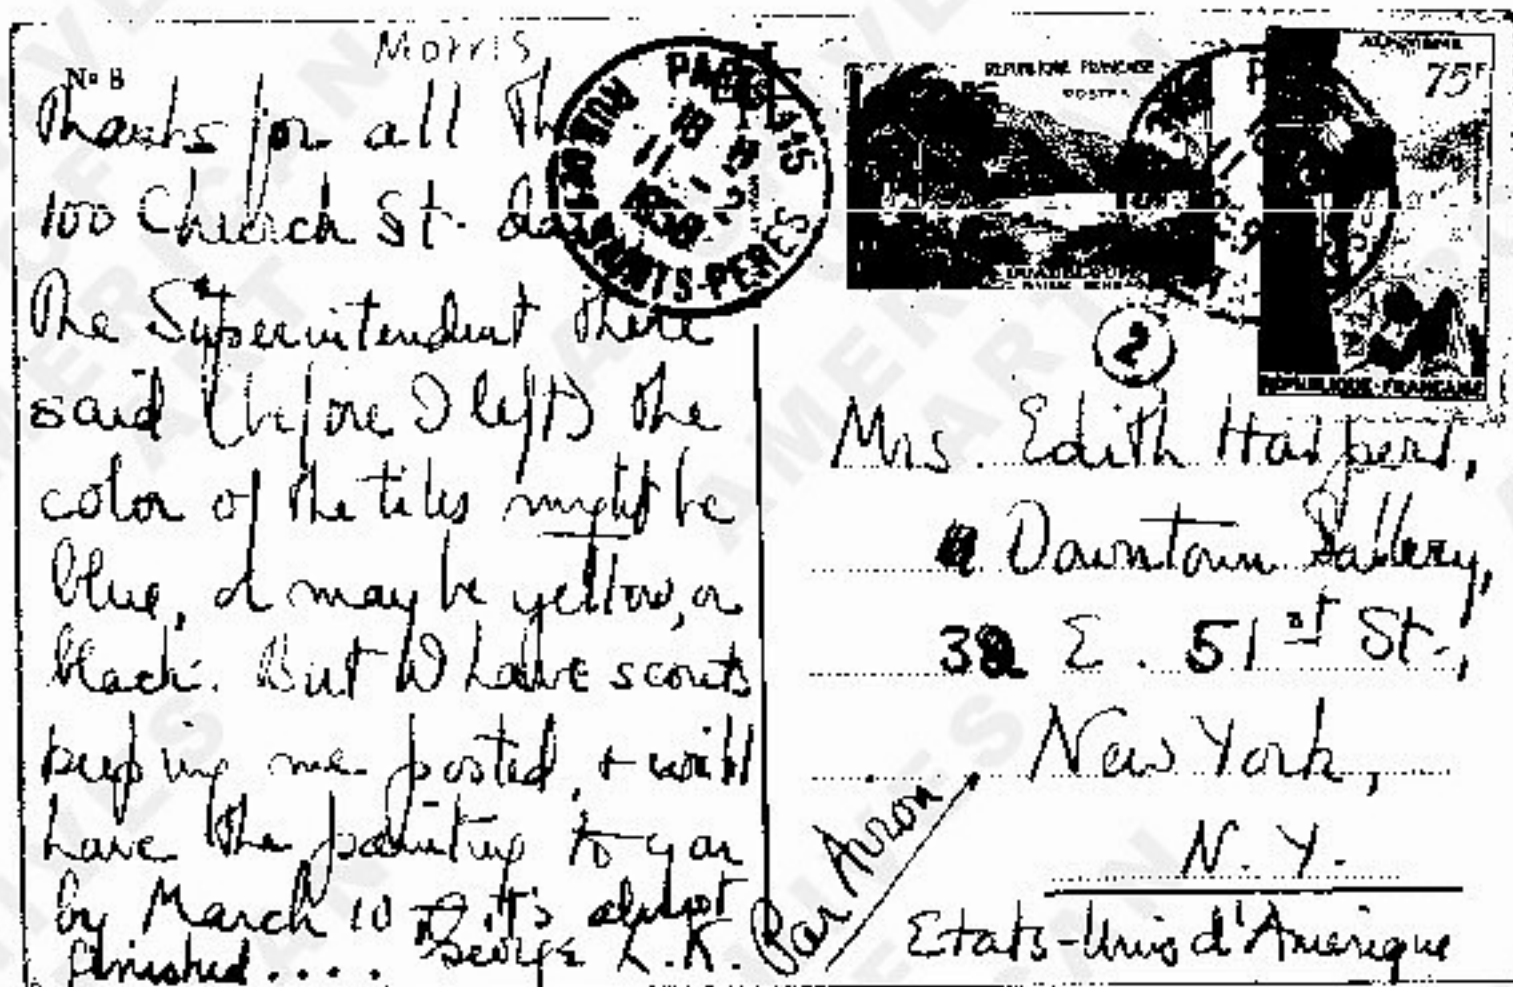 Morris
No 8
Thanks for all the
100 Church St. da
The Superintendent there
said (before I left) the
color of the tiles might be
blue, or maybe yellow, or
black. But I have scouts
keeping me posted, + will
have the painting to you
by March 10 - it's almost
finished.... George L.K.
PARIS 115
RUE DES SAINTS-PERES
18 H
11 - 2
1958
REPUBLIQUE FRANÇAISE
POSTES
GUADELOUPE
75F
REPUBLIQUE FRANÇAISE
2
Mrs. Edith Halpert,
Downtown Gallery,
32 E. 51st St.,
New York,
N. Y.
Par Avion
Etats-Unis d'Amerique
ARCHIVES OF AMERICAN ART